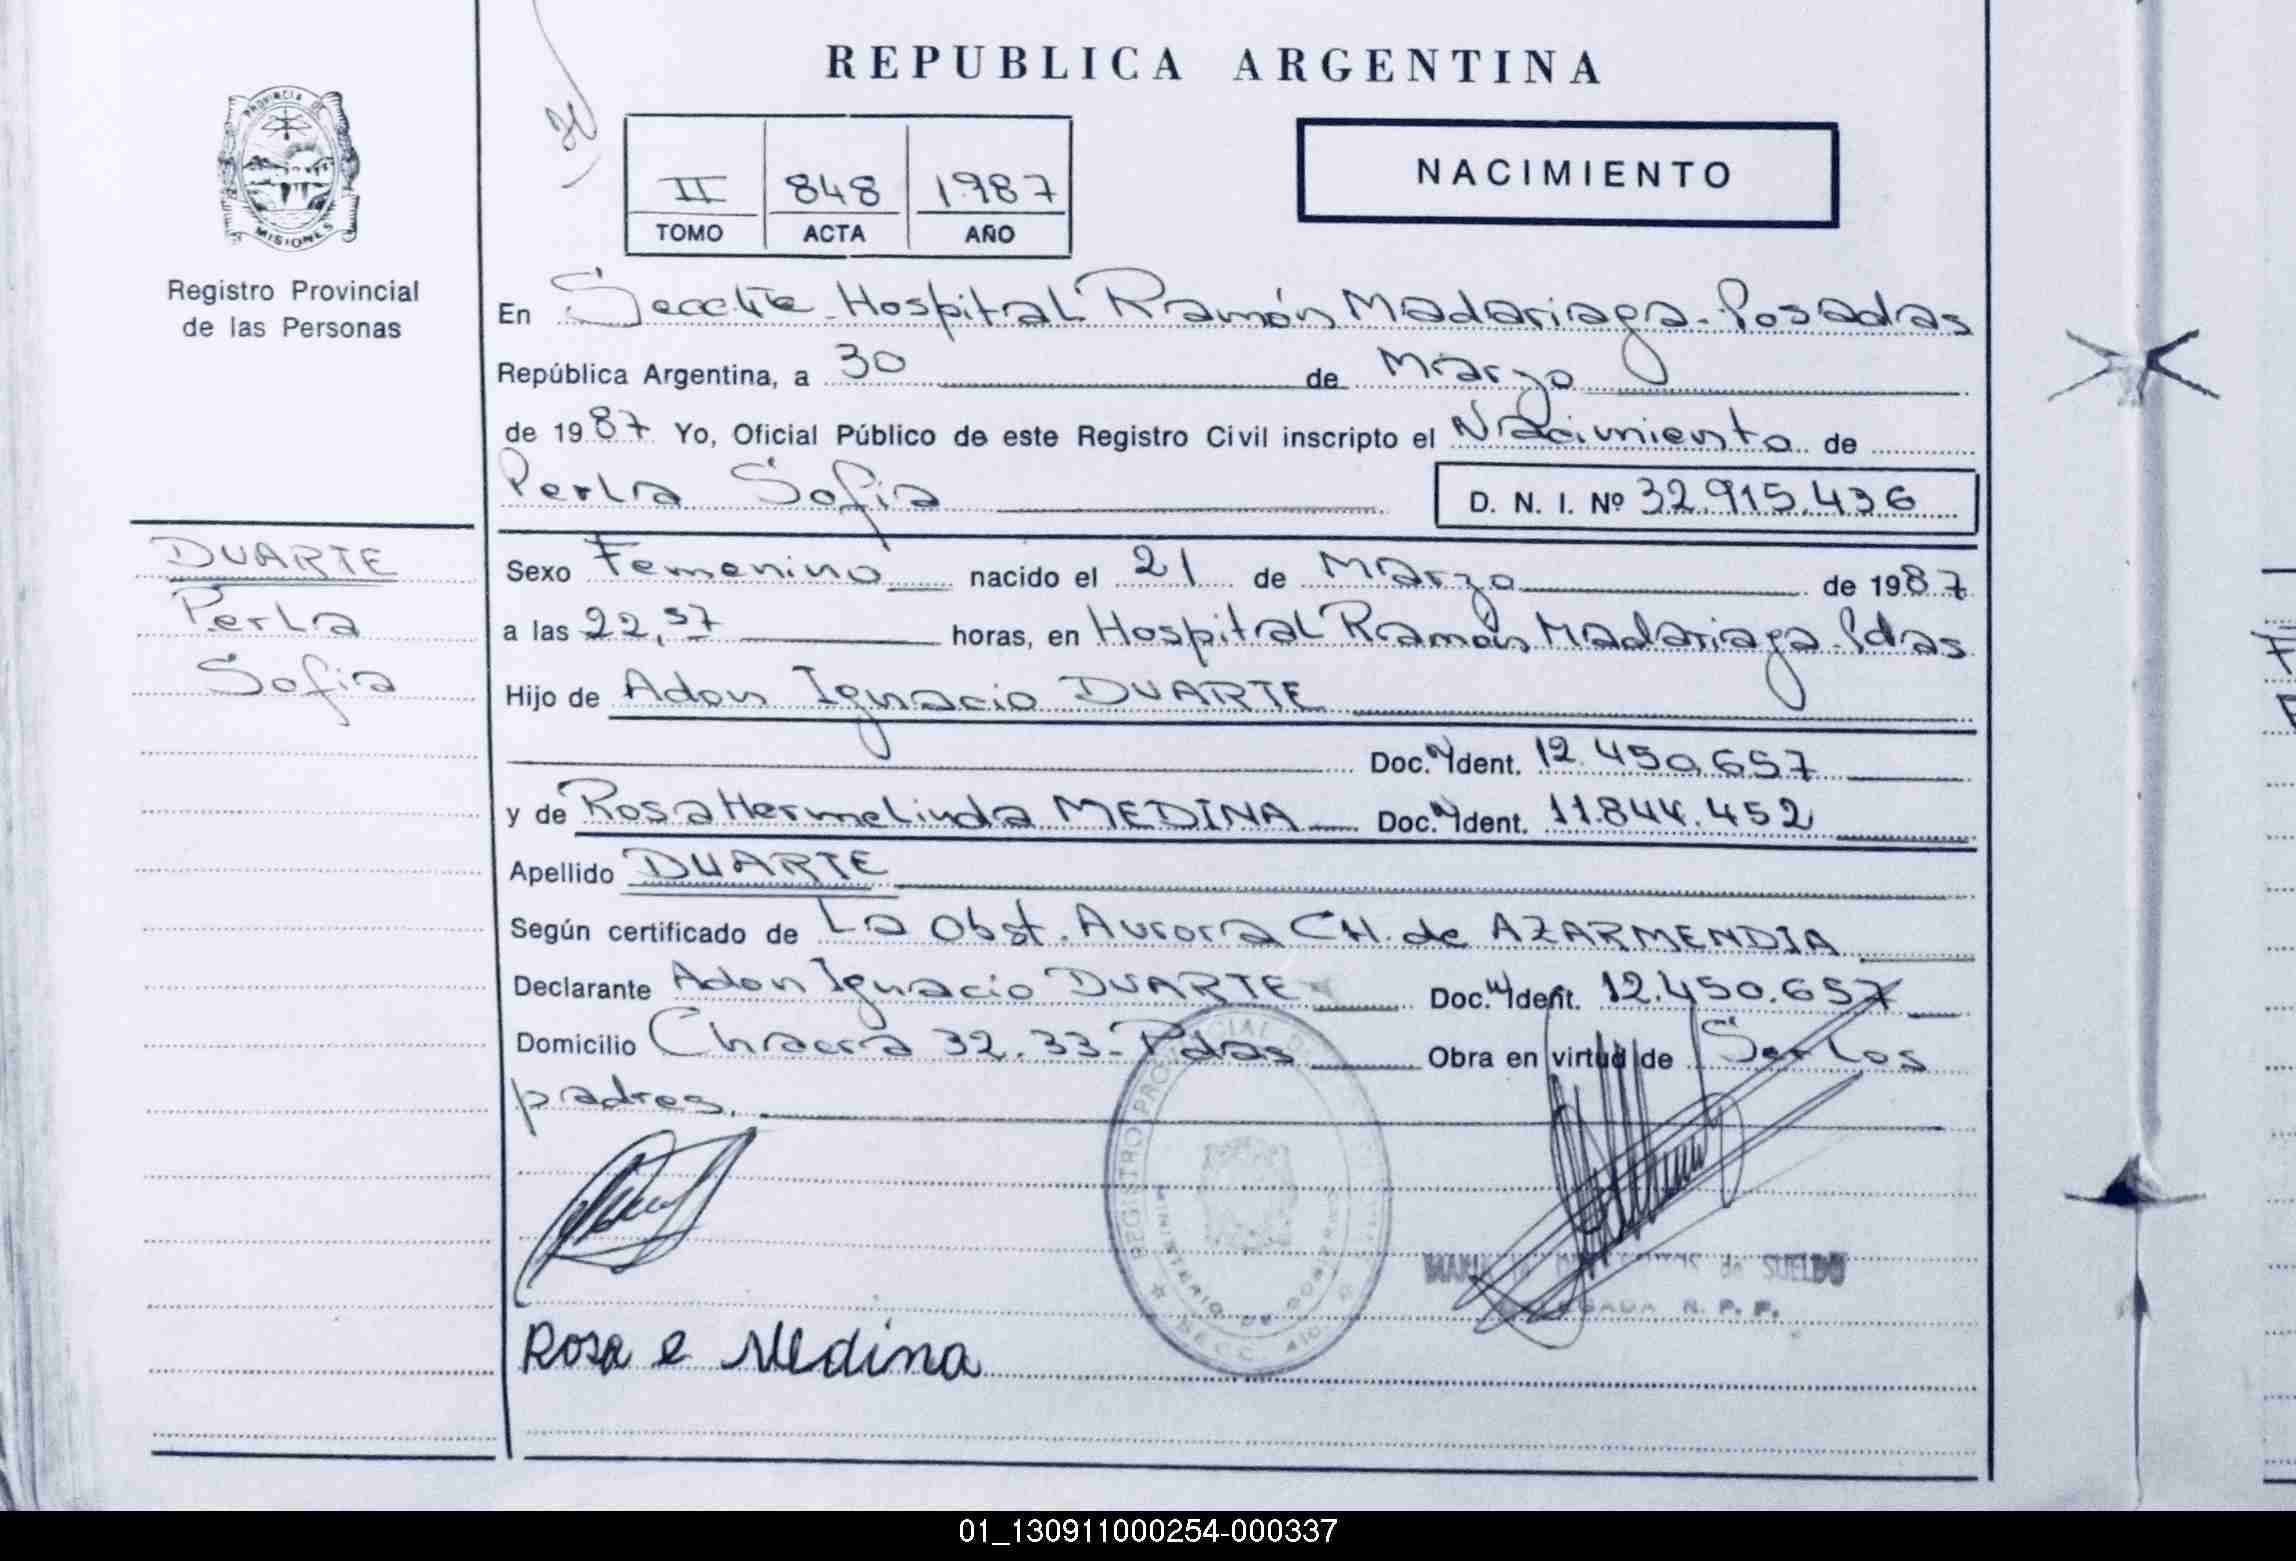 REPUBLICA ARGENTINA
PROVINCIA DE
MISIONES
Registro Provincial
de las Personas
II 848 1987
TOMO ACTA AÑO
NACIMIENTO
En Hospital Ramón Madariaga - Posadas
República Argentina, a 30 de Marzo
de 1987 Yo, Oficial Público de este Registro Civil inscripto el Nacimiento de
Perla Sofia D. N. I. Nº 32.915.436
DUARTE
Perla
Sofia
Sexo Femenino nacido el 21 de Marzo de 1987
a las 22,57 horas, en Hospital Ramón Madariaga - Pdas
Hijo de Adon Ignacio DUARTE
Doc. Ident. 12.450.657
y de Rosa Hermelinda MEDINA Doc. Ident. 11.844.452
Apellido DUARTE
Según certificado de La Obst. Aurora CH. de AZARMENDIA
Declarante Adon Ignacio DUARTE Doc. Ident. 12.450.657
Domicilio Chacra 32.33 - Pdas Obra en virtud de Ser los
padres.
REGISTRO PROVINCIAL DE
MINISTERIO DE GOBIERNO
de SUELDO
R. P. P.
Rosa e Medina
01_130911000254-000337